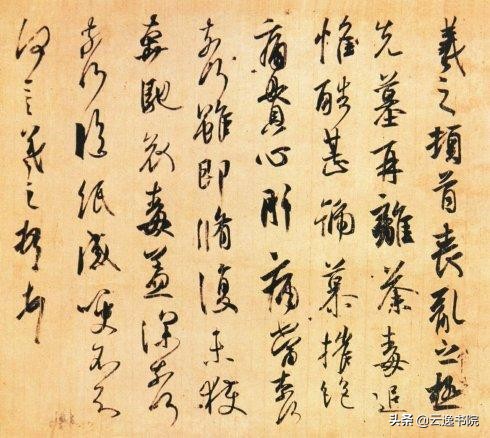 羲之頓首喪亂之極
先墓再離荼毒追
惟酷甚號慕摧絕
痛貫心肝痛當奈何
奈何雖即脩復未獲
奔馳哀毒益深奈何
奈何臨紙感哽不知
何言羲之頓首
头条 @云逸书院